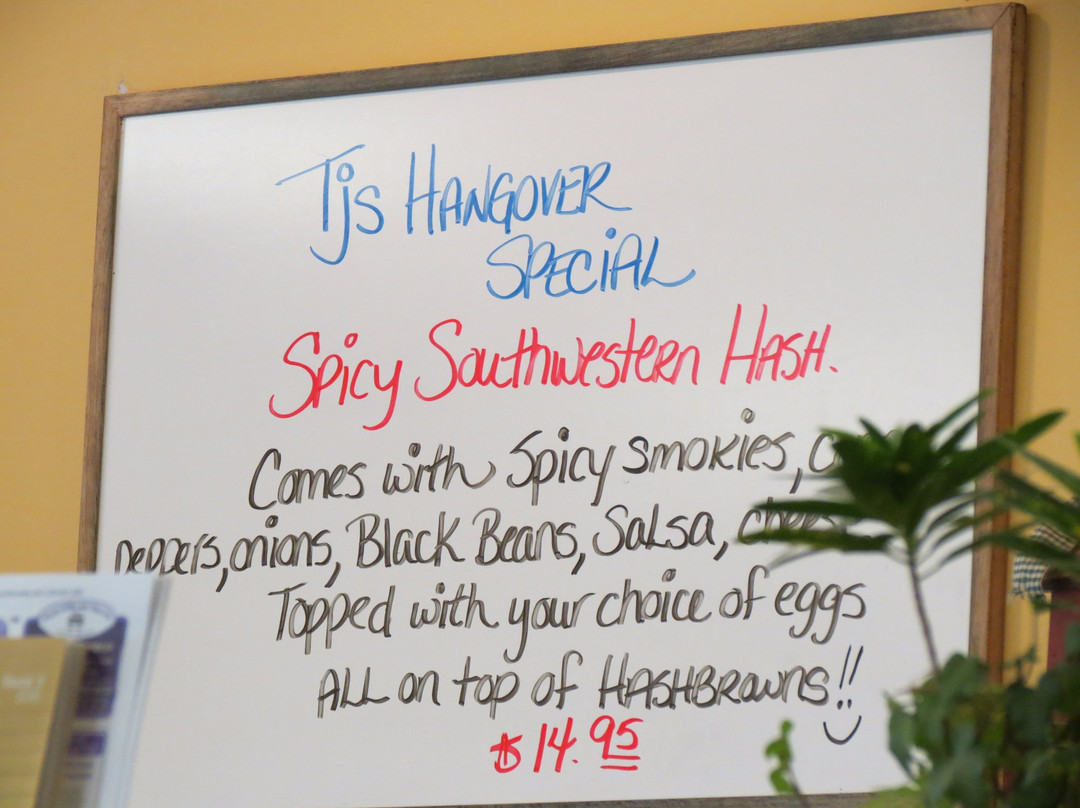 Tjs HANGOVER
SPECiAL
Spicy Southwestern HASH.
Comes with Spicy smokies,
peppers, onions, Black Beans, Salsa,
Topped with your choice of eggs
ALL on top of HASHBROWNS!!
$14.95